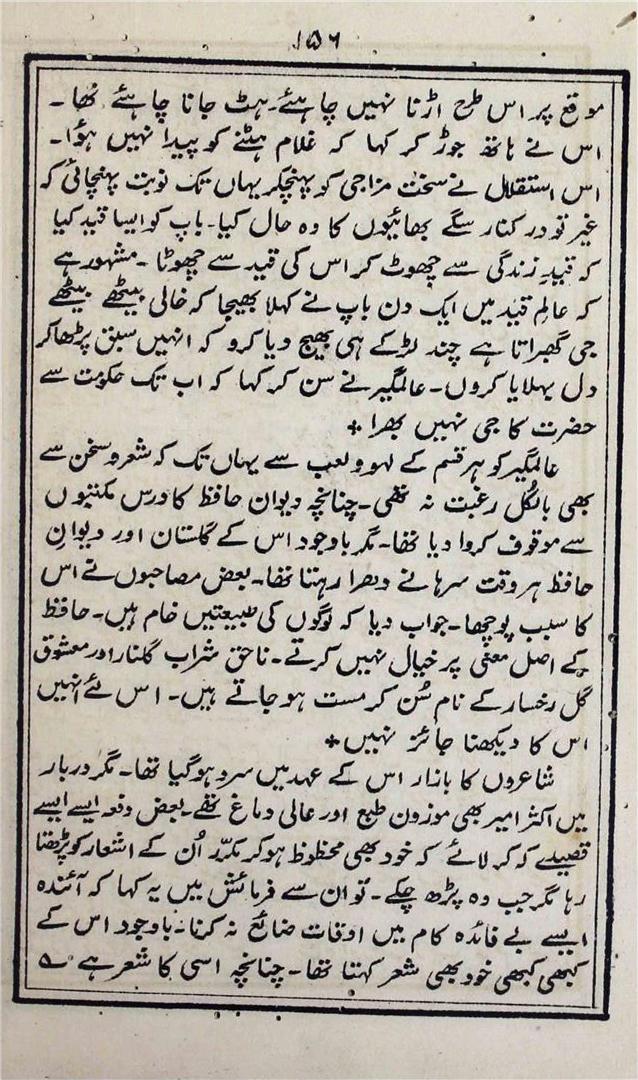 ۱۵۶
موقع پر اس طرح اڑنا نہیں چاہئے۔ ہٹ جانا چاہئے تھا۔
اس نے ہاتھ جوڑ کر کہا کہ غلام ہٹنے کو پیدا نہیں ہؤا۔
اس استقلال نے سخت مزاجی کو پہنچکر یہاں تک نوبت پہنچائی کہ
غیر تو درکنار سگے بھائیوں کا وہ حال کیا۔ باپ کو ایسا قید کیا
کہ قیدِ زندگی سے چھوٹ کر اس کی قید سے چھوٹا۔ مشہور ہے
کہ عالمِ قید میں ایک دن باپ نے کہلا بھیجا کہ خالی بیٹھے بیٹھے
جی گھبراتا ہے چند لڑکے ہی بھیج دیا کرو کہ انہیں سبق پڑھا کر
دل بہلایا کروں۔ عالمگیر نے سن کر کہا کہ اب تک حکومت سے
حضرت کا جی نہیں بھرا ٭
عالمگیر کو ہر قسم کے لہو و لعب سے یہاں تک کہ شعر و سخن سے
بھی بالکُل رغبت نہ تھی۔ چنانچہ دیوان حافظ کا درس مکتبوں
سے موقوف کروا دیا تھا۔ مگر باوجود اس کے گلستان اور دیوانِ
حافظ ہر وقت سرہانے دھرا رہتا تھا۔ بعض مصاحبوں نے اس
کا سبب پوچھا۔ جواب دیا کہ لوگوں کی طبیعتیں خام ہیں۔ حافظ
کے اصل معنی پر خیال نہیں کرتے۔ ناحق شراب گلنار اور معشوق
گل رخسار کے نام سُن کر مست ہو جاتے ہیں۔ اس لئے انہیں
اس کا دیکھنا جائز نہیں ٭
شاعروں کا بازار اس کے عہد میں سرد ہو گیا تھا۔ مگر دربار
میں اکثر امیر بھی موزون طبع اور عالی دماغ تھے۔ بعض دفعہ ایسے ایسے
قصیدے کہ کر لائے کہ خود بھی محظوظ ہو کر مکرّر اُن کے اشعار کو پڑھتا
رہا مگر جب وہ پڑھ چکے۔ تو ان سے فرمائش میں یہ کہا کہ آئندہ
ایسے بے فائدہ کام میں اوقات ضائع نہ کرنا۔ باوجود اس کے
کبھی کبھی خود بھی شعر کہتا تھا۔ چنانچہ اسی کا شعر ہے ؎